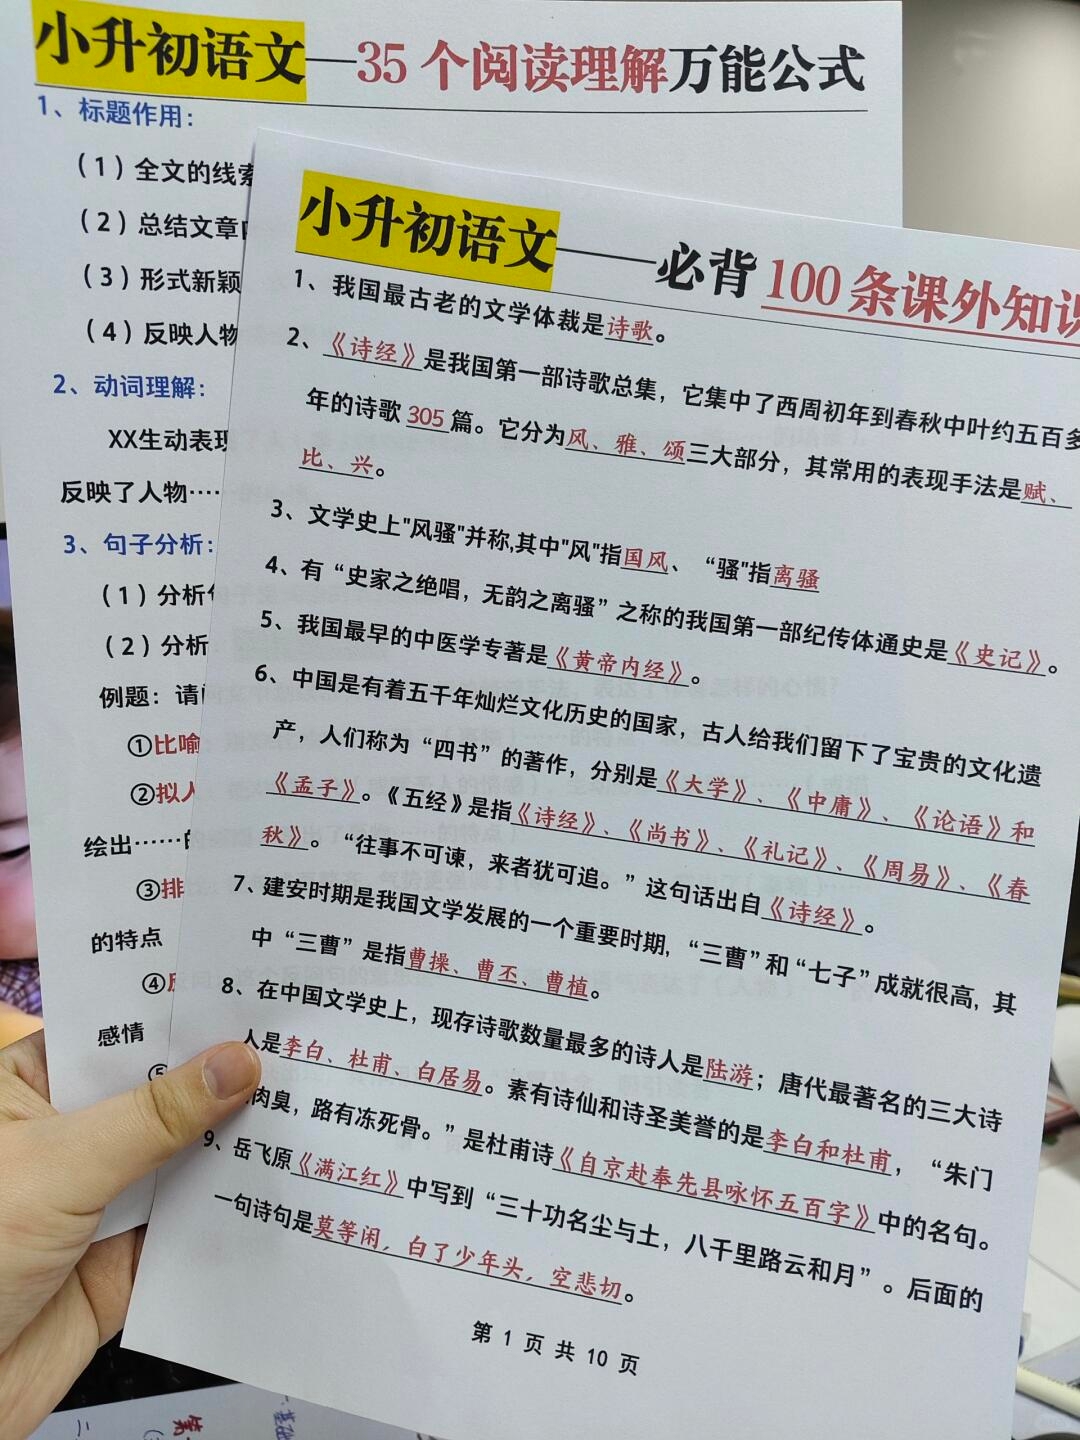 小升初语文—35个阅读理解万能公式
1、标题作用：
（1）全文的线索
（2）总结文章
（3）形式新颖
（4）反映人物
2、动词理解：
XX生动表现
反映了人物……
3、句子分析：
（1）分析
（2）分析
例题：请
①比喻
②拟人
绘出……
③排
的特点
④
感情
⑤
小升初语文——必背100条课外知识
1、我国最古老的文学体裁是诗歌。
2、《诗经》是我国第一部诗歌总集，它集中了西周初年到春秋中叶约五百多
年的诗歌305篇。它分为风、雅、颂三大部分，其常用的表现手法是赋、
比、兴。
3、文学史上"风骚"并称,其中"风"指国风、“骚"指离骚
4、有“史家之绝唱，无韵之离骚”之称的我国第一部纪传体通史是《史记》。
5、我国最早的中医学专著是《黄帝内经》。
6、中国是有着五千年灿烂文化历史的国家，古人给我们留下了宝贵的文化遗
产，人们称为“四书”的著作，分别是《大学》、《中庸》、《论语》和
《孟子》。《五经》是指《诗经》、《尚书》、《礼记》、《周易》、《春
秋》。“往事不可谏，来者犹可追。”这句话出自《诗经》。
7、建安时期是我国文学发展的一个重要时期，“三曹”和“七子”成就很高，其
中“三曹”是指曹操、曹丕、曹植。
8、在中国文学史上，现存诗歌数量最多的诗人是陆游；唐代最著名的三大诗
人是李白、杜甫、白居易。素有诗仙和诗圣美誉的是李白和杜甫，“朱门
肉臭，路有冻死骨。”是杜甫诗《自京赴奉先县咏怀五百字》中的名句。
9、岳飞原《满江红》中写到“三十功名尘与土，八千里路云和月”。后面的
一句诗句是莫等闲，白了少年头，空悲切。
第 1 页 共 10 页